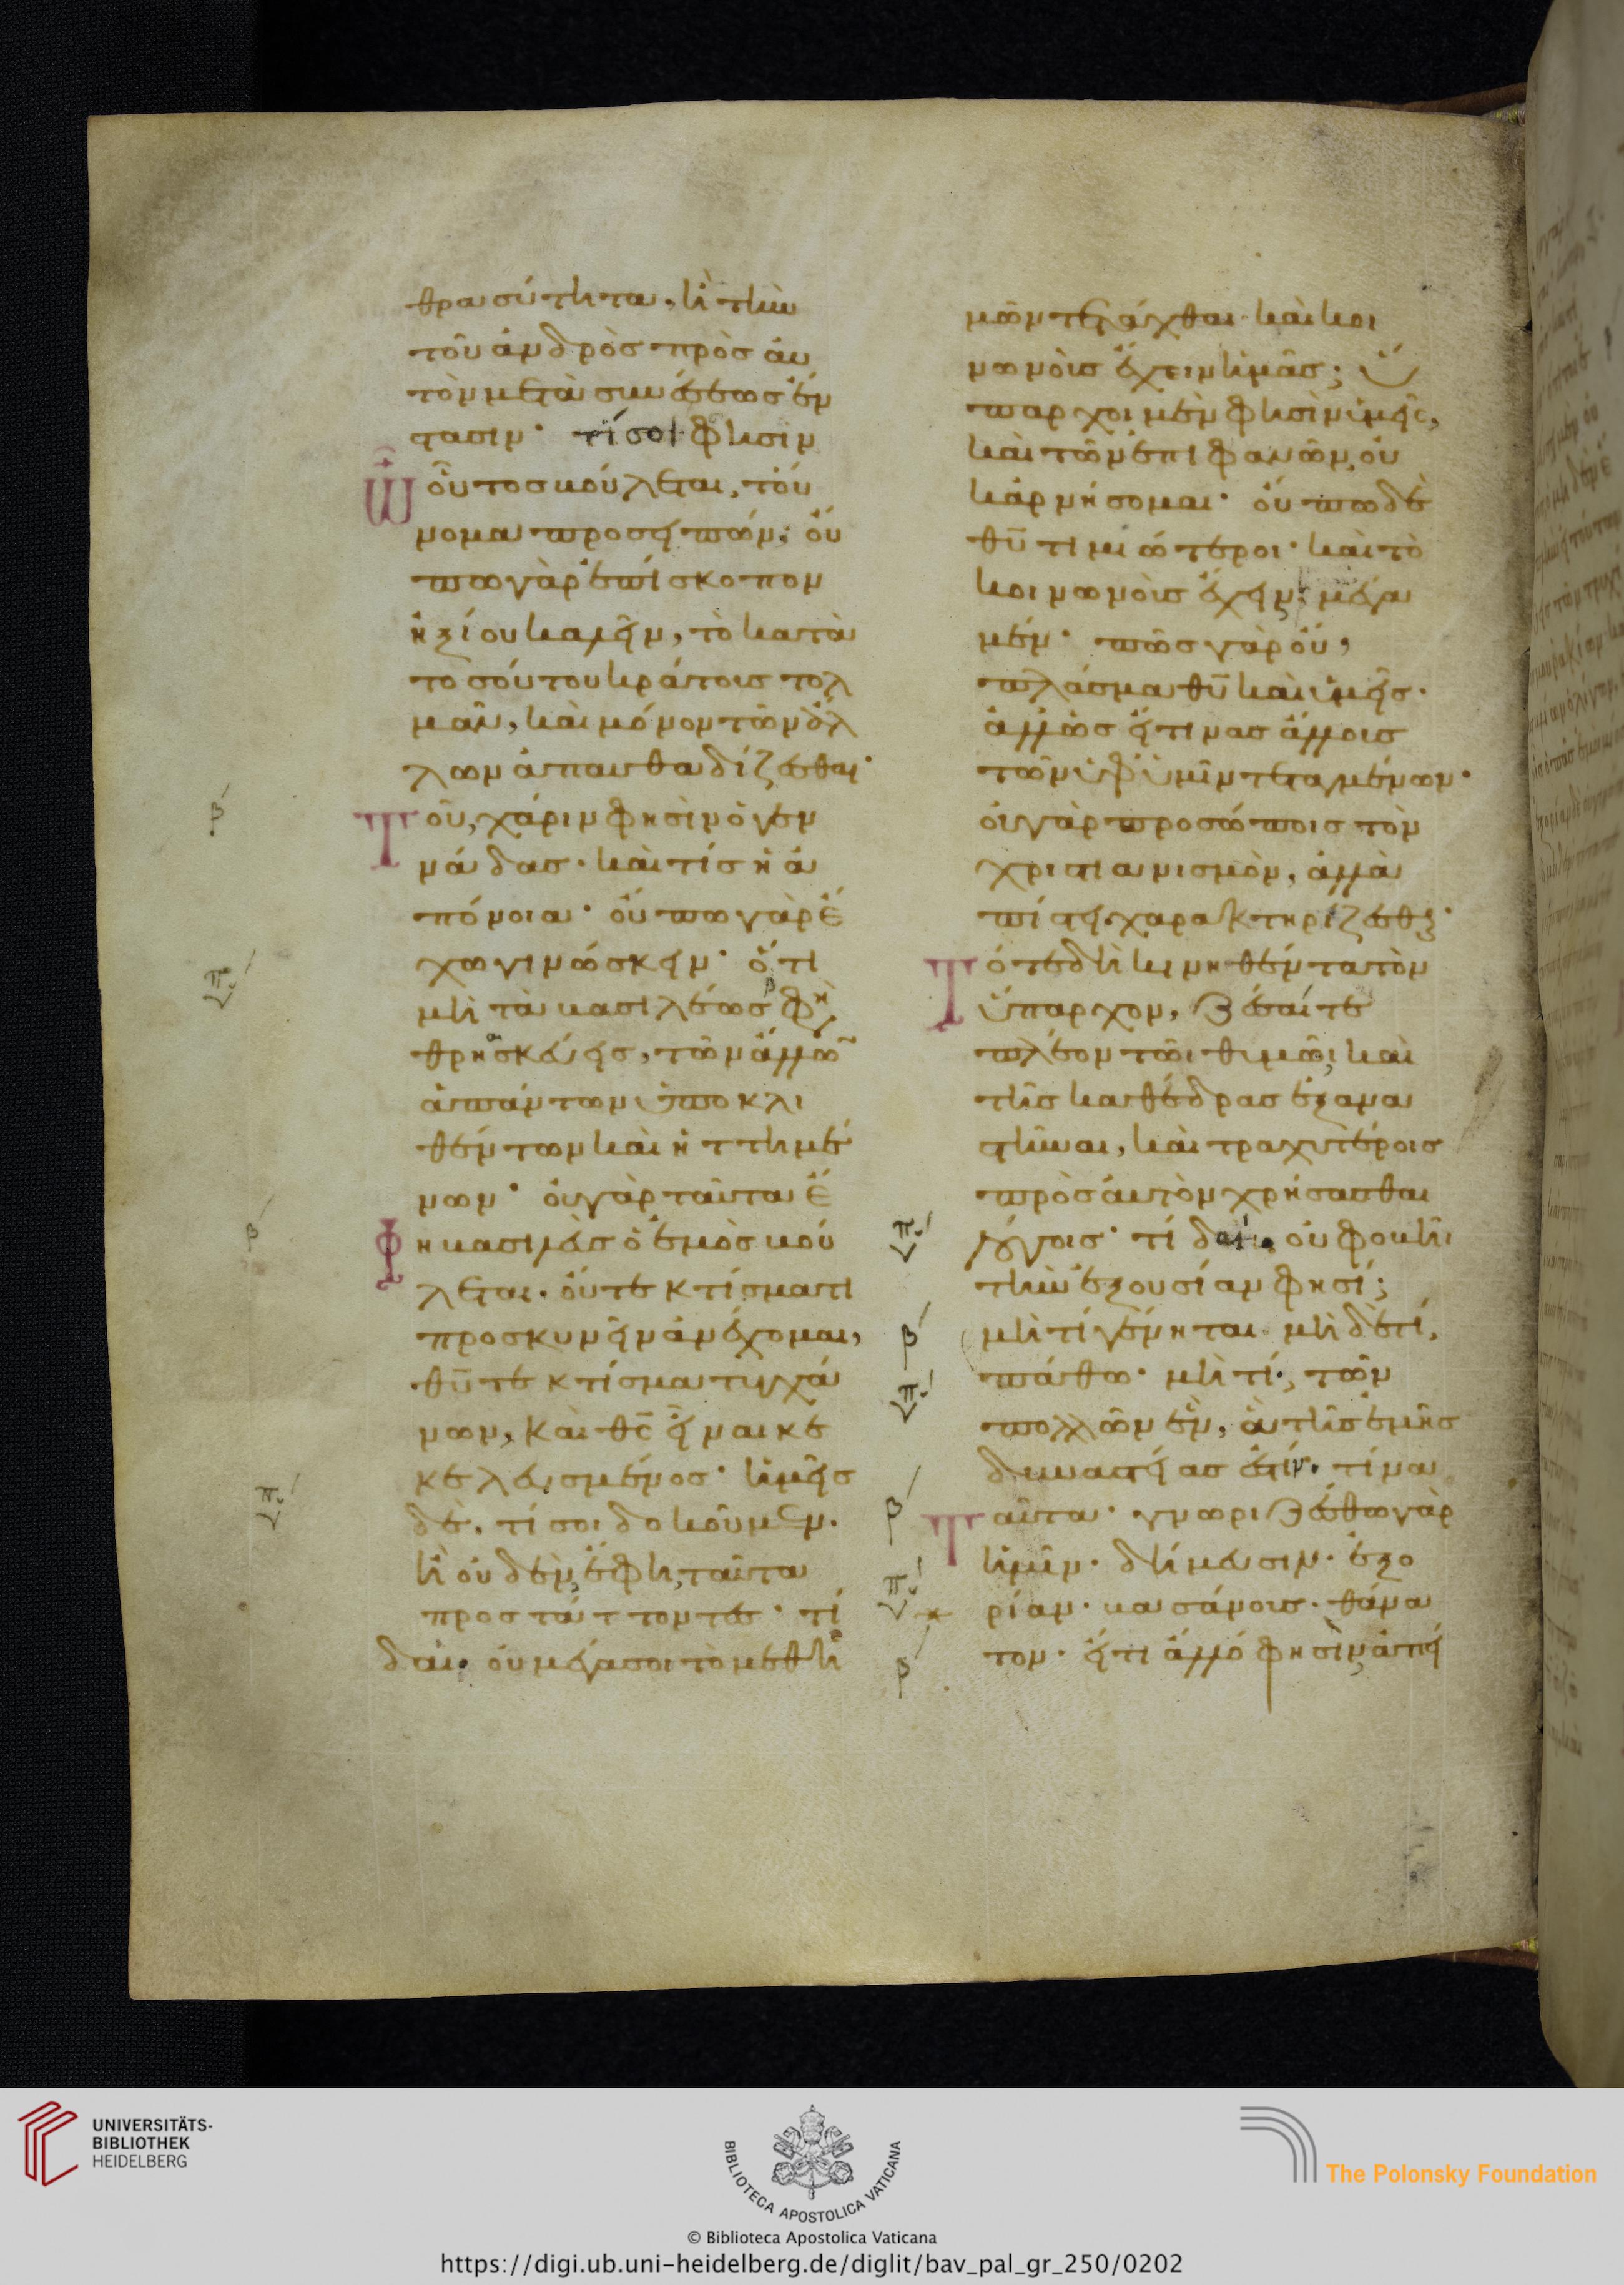 θρασύτητα, ἢ τὴν
τοῦ ἀνδρὸς πρὸς αὐ
τὸν μετὰ συνέσεως ἔν
στασιν· τί σοι φησὶν
ὦ οὗτος βούλεται, τοὔ
νομα προσειπών; οὔ
πω γὰρ ἐπίσκοπον
ἠξίου καλεῖν, τὸ κατὰ
τοσούτου κράτους τολ
μᾶν, καὶ μόνον τῶν ἄλ
λων ἀπαυθαδίζεσθαι·
Τοῦ, χάριν φησὶν ὁ γεν
νάδας· καὶ τίς ἡ ἀ
πόνοια· οὔπω γὰρ ἔ
χω γινώσκειν· ὅτι
μὴ τὰ βασιλέως φὴ
θρησκεύεις, τῶν ἄλλω῀
ἁπάντων ὑποκλι
θέντων καὶ ἡττημέ
νων· οὐ γὰρ ταῦτα ἔ
φη βασιλεὺς ὁ ἐμὸς βού
λεται· οὔτε κτίσμά τι
προσκυνεῖν ἀνέχομαι,
θῦ τε κτίσμα τυγχά
νων, καὶ θς εἶναι κε
κελευσμένος· ἡμεῖς
δέ, τί σοι δοκοῦμεν·
ἢ οὐδὲν, ἔφη, ταῦτα
προστάττοντες· τί
δαί· οὐ μέγα σοι τὸ μεθ ἡ
μῶν τετάχθαι καὶ κοι
νωνοὺς ἔχειν ἡμᾶς; ὕ
παρχοι μὲν φησὶν ὑμεῖς,
καὶ τῶν ἐπιφανῶν, οὐ
κ ἀρνήσομαι· οὔπω δὲ
θῦ τιμιώτεροι· καὶ τὸ
κοινωνοὺς ἔχειν, μέγα
μέν· πῶς γὰρ οὔ,
πλάσμα θῦ καὶ ὑμεῖς·
ἀλλ ὡς εἴ τινας ἄλλους
τῶν ὑφ ὑμῖν τεταγμένων·
οὐ γὰρ προσώποις τὸν
χριστιανισμὸν, ἀλλὰ
πίστει χαρακτηρίζεσθαι·
Τότε δὴ κινηθέντα τὸν
ὕπαρχον, ζέσαί τε
πλέον τῶι θυμῶι, καὶ
τῆς καθέδρας ἐξανα
στῆναι, καὶ τραχυτέροις
πρὸς αὐτὸν χρήσασθαι
λόγοις· τί δαί· οὐ φοβῆι
τὴν ἐξουσίαν φησί;
μὴ τί γένηται μὴ δὲ τί,
πάθω· μὴ τί, τῶν
πολλῶν ἕν, ἃ τῆς ἐμῆς
δυναστείας ἐστίν· τίνα
Ταῦτα· γνωριζέσθω γὰρ
ἡμῖν· δήμευσιν· ἐξο
ρίαν· βασάνους· θάνα
τον· εἴ τι ἄλλο φησὶν ἀπεί
UNIVERSITÄTS-
BIBLIOTHEK
HEIDELBERG
BIBLIOTECA APOSTOLICA VATICANA
© Biblioteca Apostolica Vaticana
https://digi.ub.uni-heidelberg.de/diglit/bav_pal_gr_250/0202
The Polonsky Foundation